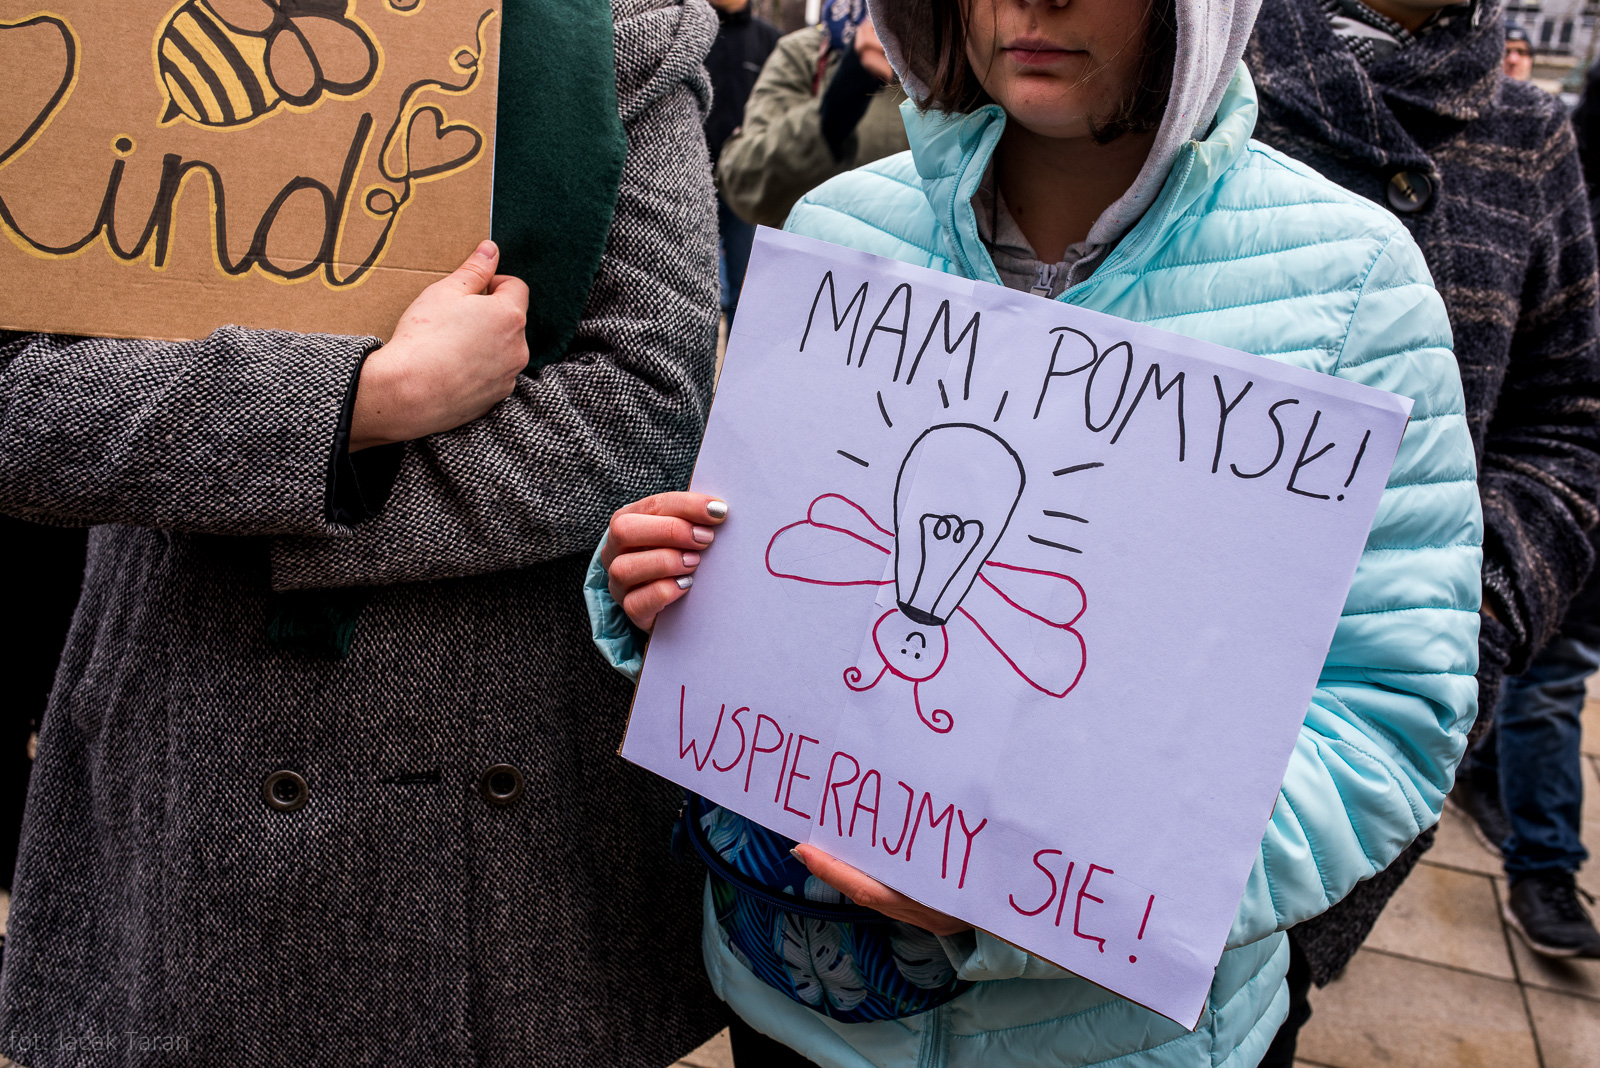 Kind
MAM, POMYSŁ!
WSPIERAJMY SIĘ!
fot: Jacek Taran